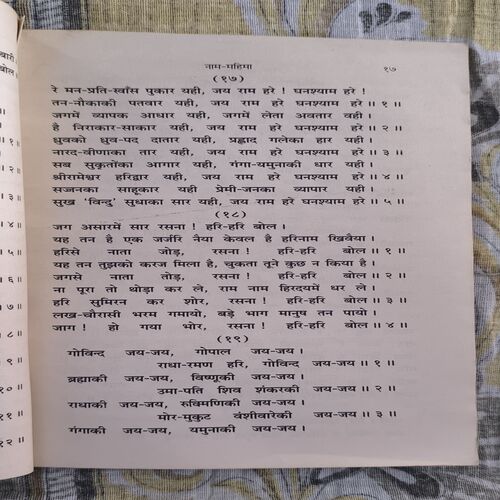 बारी
बोल ॥
१ ॥
२ ॥
३ ॥
४ ॥
५ ॥
६ ॥
७ ॥
८ ॥
९ ॥
१० ॥
११ ॥
१२ ॥
नाम-महिमा १७
(१७)
रे मन-प्रति-स्वाँस पुकार यही, जय राम हरे ! घनश्याम हरे !
तन-नौकाकी पतवार यही, जय राम हरे घनश्याम हरे॥ १ ॥
जगमें व्यापक आधार यही, जगमें लेता अवतार वही।
है निराकार-साकार यही, जय राम हरे घनश्याम हरे॥ २ ॥
ध्रुवको ध्रुव-पद दातार यही, प्रह्लाद गलेका हार यही।
नारद-वीणाका तार यही, जय राम हरे घनश्याम हरे॥ ३ ॥
सब सुकृतोंका आगार यही, गंगा-यमुनाकी धार यही।
श्रीरामेश्वर हरिद्वार यही, जय राम हरे घनश्याम हरे॥ ४ ॥
सज्जनका साहूकार यही प्रेमी-जनका व्यापार यही।
सुख 'विन्दु' सुधाका सार यही, जय राम हरे घनश्याम हरे॥ ५ ॥
(१८)
जग असारमें सार रसना ! हरि-हरि बोल।
यह तन है एक जर्जरि नैया केवल है हरिनाम खिवैया।
हरिसे नाता जोड़, रसना! हरि-हरि बोल ॥ १ ॥
यह तन तुझको करज मिला है, चुकता तूने कुछ न किया है।
जगसे नाता तोड़, रसना! हरि-हरि बोल ॥ २ ॥
ना पूरा तो थोड़ा कर ले, राम नाम हिरदयमें धर ले।
हरि सुमिरन कर शोर, रसना! हरि-हरि बोल ॥ ३ ॥
लख-चौरासी भरम गमायो, बड़े भाग मानुष तन पायो।
जाग! हो गया भोर, रसना! हरि-हरि बोल ॥ ४ ॥
(१९)
गोविन्द जय-जय, गोपाल जय-जय।
राधा-रमण हरि, गोविन्द जय-जय॥ १ ॥
ब्रह्माकी जय-जय, विष्णूकी जय-जय।
उमा-पति शिव शंकरकी जय-जय॥ २ ॥
राधाकी जय-जय, रुक्मिणिकी जय-जय।
मोर-मुकुट वंशीवारेकी जय-जय॥ ३ ॥
गंगाकी जय-जय, यमुनाकी जय-जय।